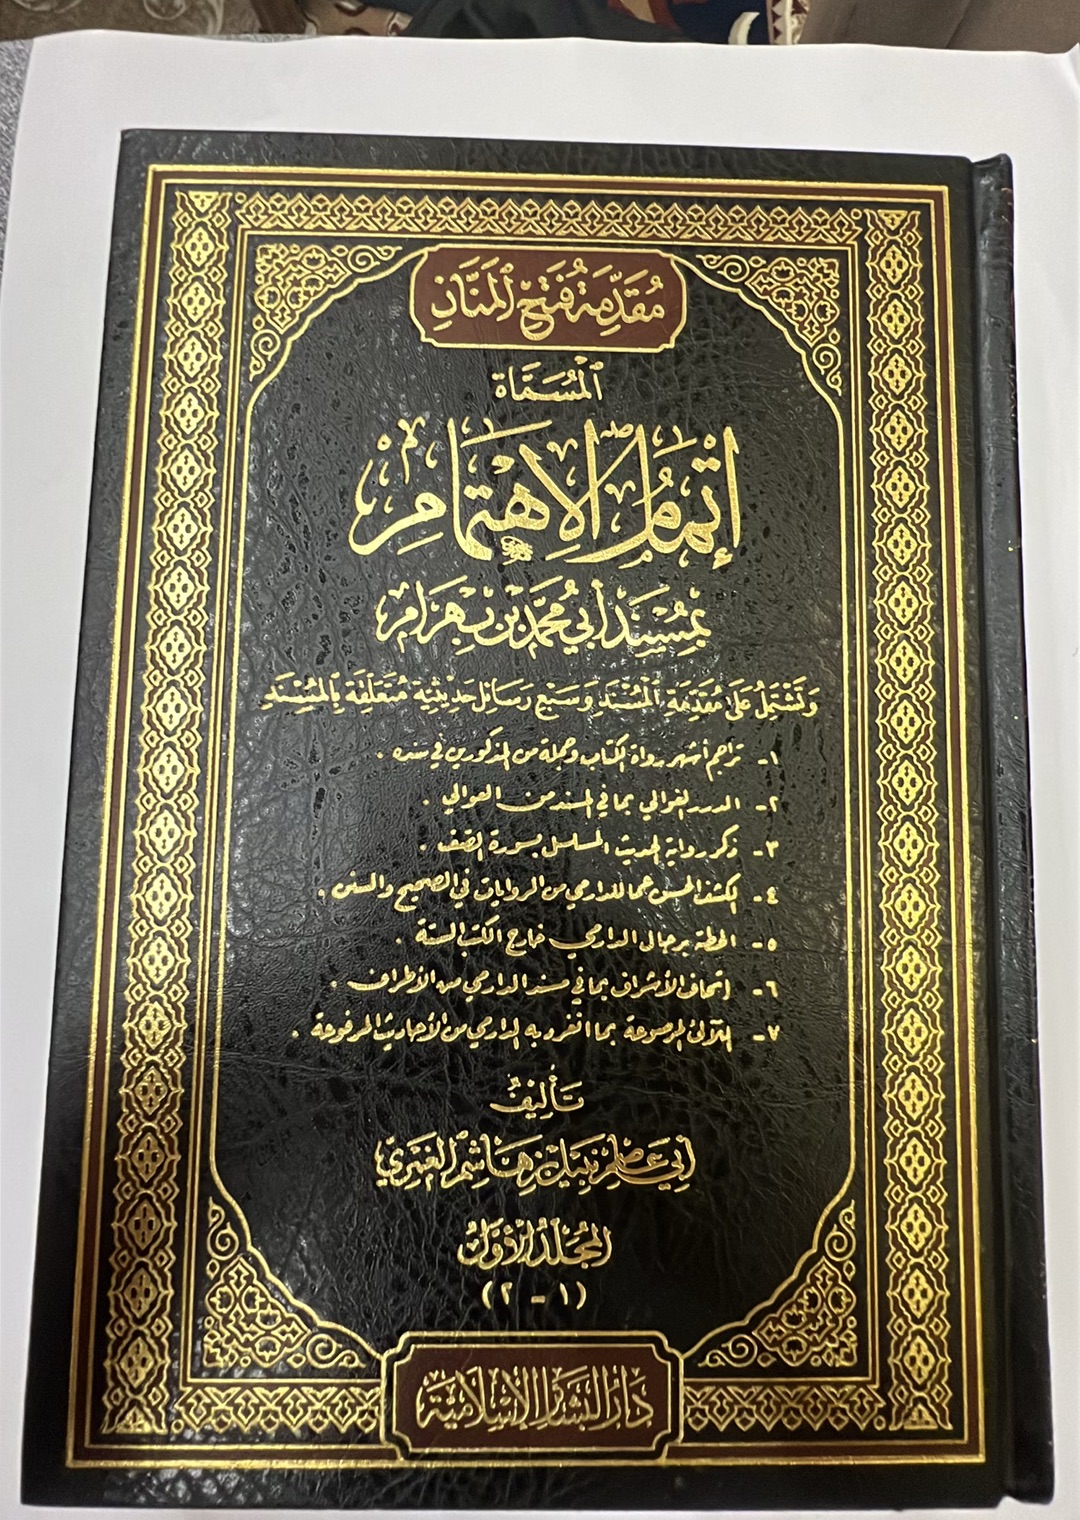 مُقَدِّمَة فَتْحِ الْمَنَّانِ
الْمُسَمَّاة
إِتْمَامُ الِاهْتِمَامِ
بِمُسْنَدِ أَبِي مُحَمَّدِ بْنِ بَهْرَامٍ
وَتَشْتَمِلُ عَلَى مُقَدِّمَةِ الْمُسْنَدِ وَسَبْعِ رَسَائِلَ حَدِيثِيَّةٍ مُتَعَلِّقَةٍ بِالْمُسْنَدِ
١- تراجم أشهر رواة الكتاب وجملة من المذكورين في سنده .
٢- الدرر الغوالي بما في المسند من العوالي .
٣- ذكر رواية الحديث المسلسل بسورة الصف .
٤- الكشف الحسن عما للدارمي من الروايات في الصحيح والسنن .
٥- الحطة برجال الدارمي خارج الكتب الستة .
٦- إتحاف الأشراف بما في مسند الدارمي من الأطراف .
٧- اللآلئ المرصوعة بما انفرد به الدارمي من الأحاديث المرفوعة .
تَأْلِيفُ
أَبِي عَاصِمٍ نَبِيلِ بْنِ هَاشِمٍ الْغَمْرِيِّ
الْمُجَلَّدُ الْأَوَّلُ
(١ - ٢)
دَارُ الْبَشَائِرِ الْإِسْلَامِيَّةِ